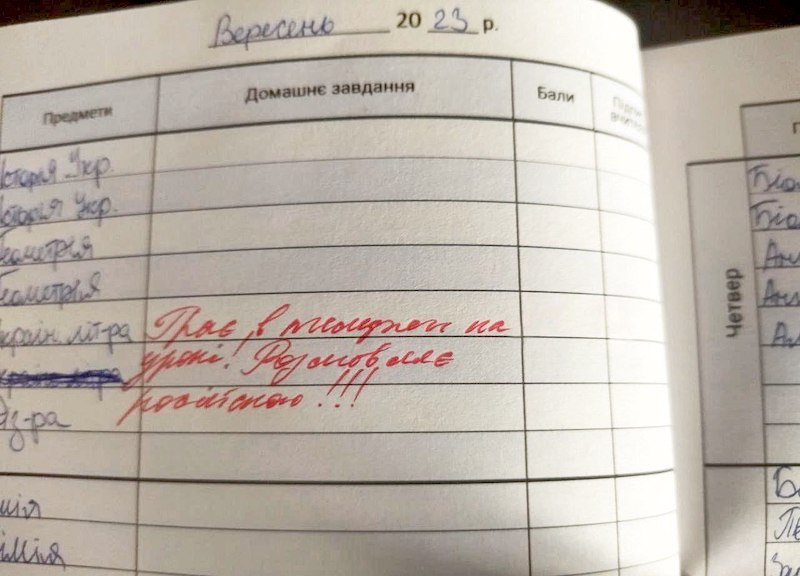 Вересень 20 23 р.
Предмети Домашнє завдання Бали Підпис вчителя
сторія Укр.
сторія Укр.
Геометрія
Геометрія
країн. літ-ра Грає в телефон на
уроці! Розмовляє
російською!!!
Фіз-ра
імія
імія
Четвер
Біо
Біо
Анг
Анг
Ал